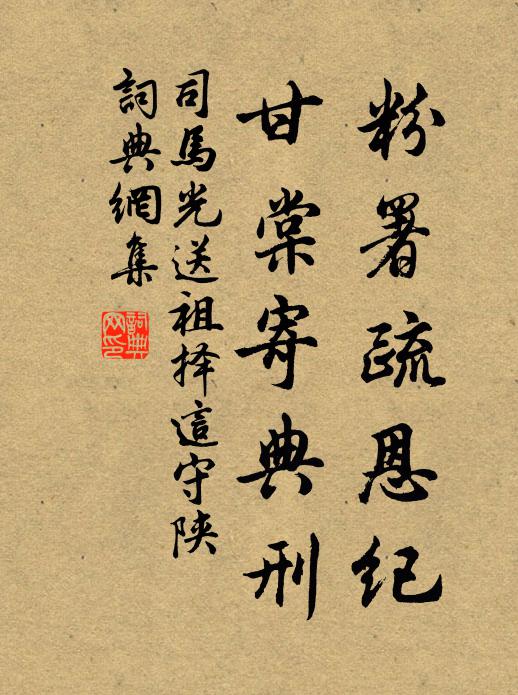 粉署疏恩纪
甘棠寄典刑
司馬光送祖择這守陕
詞典網集
詞典网印